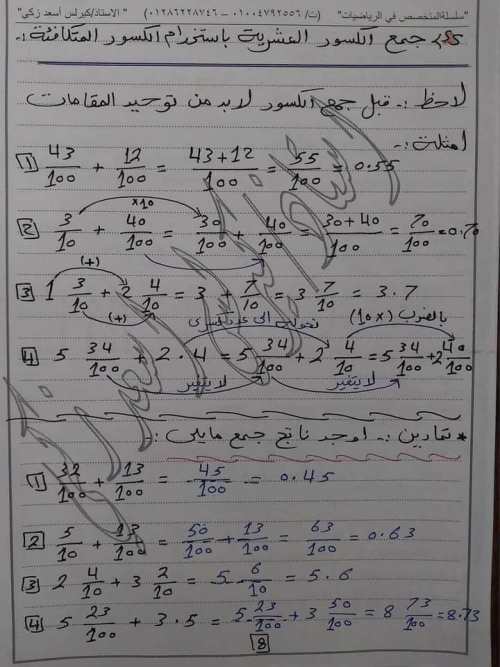 "سلسلةالمتخصص في الرياضيات" (ت/ ٠١٠٠٤٧٩٢٥٥٦ – ٠١٢٨٦٢٢٨٧٤٦) "الاستاذ/كيرلس أسعد زكي"
جمع الكسور العشرية باستخدام الكسور المتكافئة :-
لاحظ :- قبل جمع الكسور لابد من توحيد المقامات
أمثلة :-
1 43/100 + 12/100 = 43+12/100 = 55/100 = 0.55
×10
2 3/10 + 40/100 = 30/100 + 40/100 = 30+40/100 = 70/100 = 0.70
(+)
3 1 3/10 + 2 4/10 = 3 + 7/10 = 3 7/10 = 3.7
(+) تحويل الى عدد كسرى بالضرب (×10)
4 5 34/100 + 2.4 = 5 34/100 + 2 4/10 = 5 34/100 + 2 40/100
لا يتغير لا يتغير
* تمارين :- اوجد ناتج جمع مايلى :-
1 32/100 + 13/100 = 45/100 = 0.45
2 5/10 + 13/100 = 50/100 + 13/100 = 63/100 = 0.63
3 2 4/10 + 3 2/10 = 5 6/10 = 5.6
4 5 23/100 + 3.5 = 5 23/100 + 3 50/100 = 8 73/100 = 8.73
8